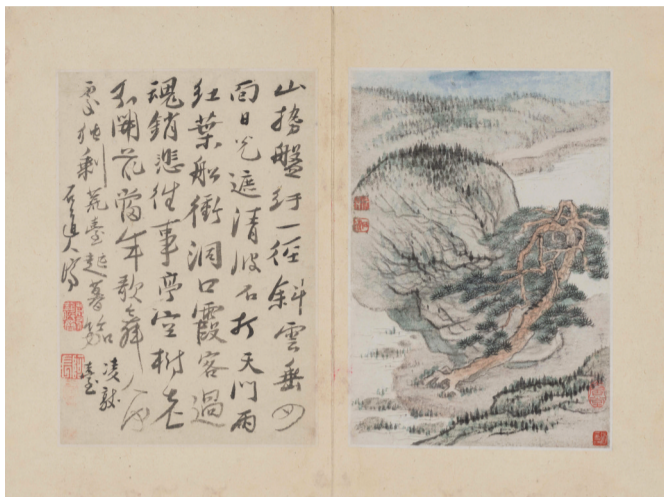 山勢盤紆一徑斜雲垂四
面日光遮清波石打天門雨
紅葉船衝洞口霞客過
魂銷悲往事亭空樹老
不開花當年歌舞人何
處獨剩荒臺起暮笳
凌歊
臺
石道人濟